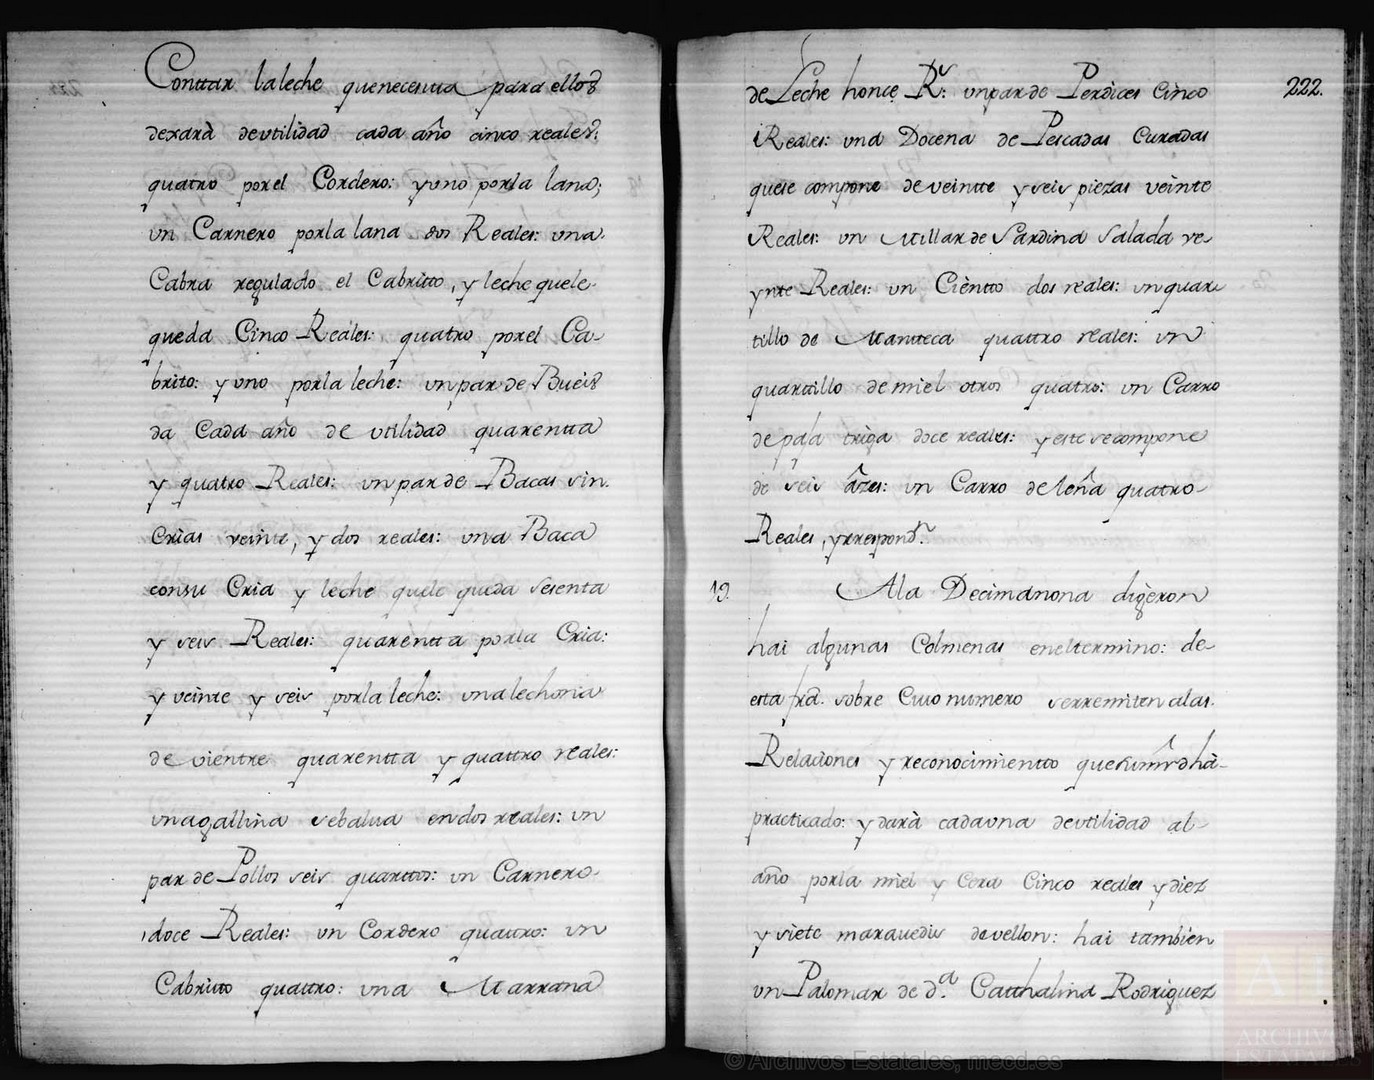 Conttar la leche que necesitta para ellos
dexarà de utilidad cada año cinco reales;
quatro por el Cordero: y uno por la lana;
un Carnero por la lana dos Reales: una
Cabra regulado el Cabritto, y leche que le
queda Cinco Reales: quatro por el Ca-
brito: y uno por la leche: un par de Bueis
da Cada año de utilidad quarentta
y quatro Reales: un par de Bacas sin
Crias veinte, y dos reales: una Baca
con su Cria y leche que le queda sesenta
y seis Reales: quarentta por la Cria:
y veinte y seis por la leche: una lechona
de vientre quarentta y quattro reales:
una gallina se balua en dos reales: un
par de Pollos seis quarttos: un Carnero
doce Reales: un Cordero quattro: un
Cabritto quattro: una Marrana
de Leche honce Rs: un par de Perdices Cinco
Reales: una Docena de Pescadas Curadas
que se compone de veintte y seis piezas veinte
Reales: un Millar de Sardina Salada ve-
ynte Reales: un Cientto dos reales: un quar-
tillo de Mantteca quattro reales: un
quartillo de miel otros quatro: un Carro
de paja triga doce reales: y este se compone
de seis âzes: un Carro de leña quatro
Reales, y rrespondn.
19. A la Decimanona digeron
hai algunas Colmenas en el termino: de
esta frâ. sobre Cuio numero se rremiten a las
Relaciones y reconocimientto que su mrd hà
practicado: y darà cada una de utilidad al
año por la miel y Cera Cinco reales y diez
y siete marauedis de vellon: hai tambien
un Palomar de d.a Catthalina Rodriguez
222.
© Archivos Estatales, mecd.es
ARCHIVOS
ESTATALES